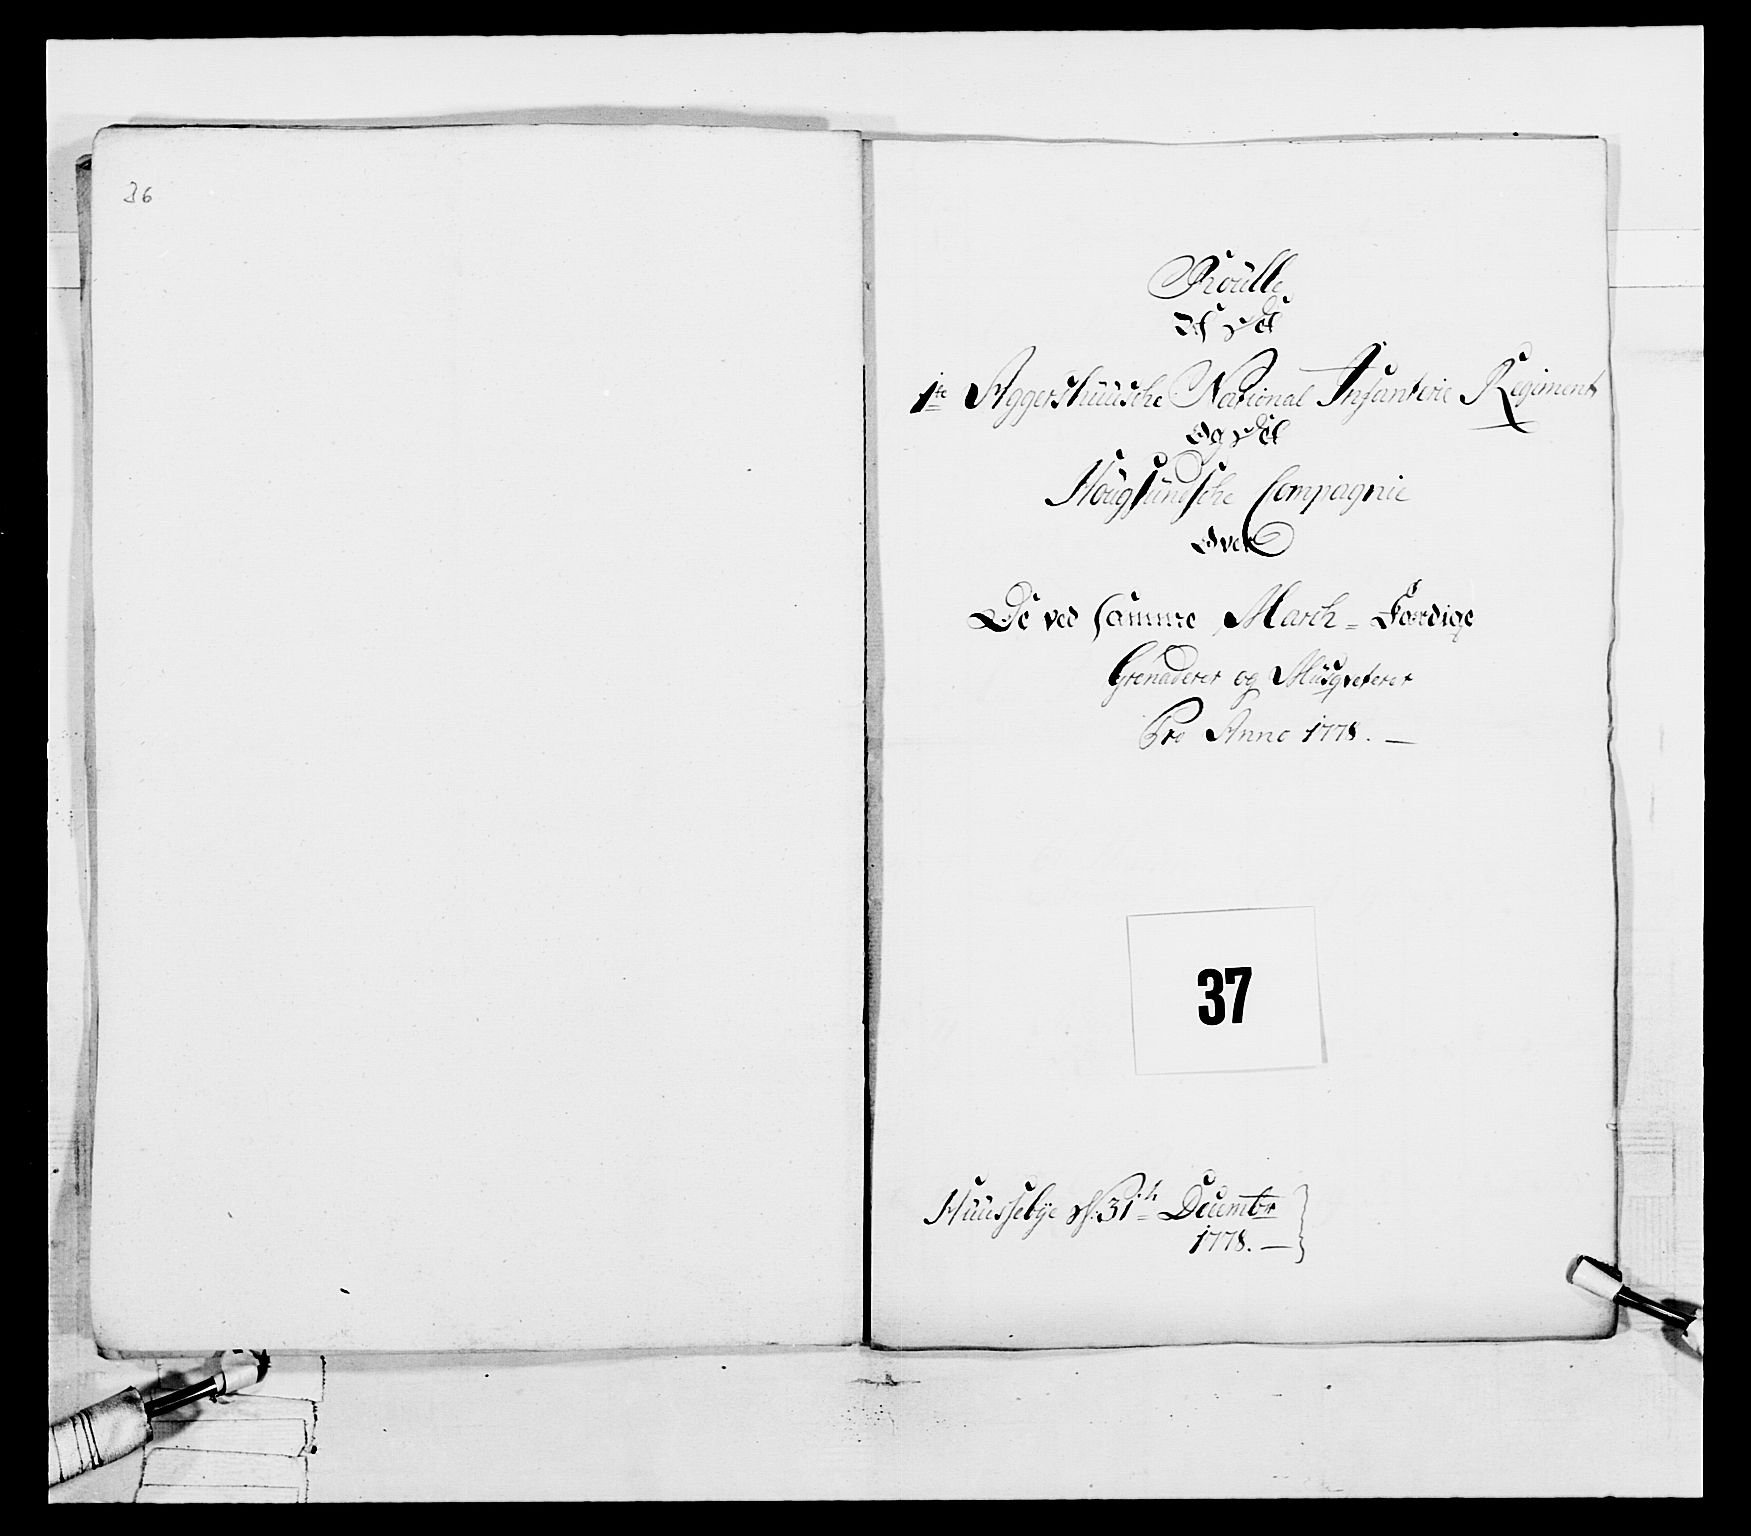 36
Roülle
Af Det
1te Aggershüüsche National Infanterie Regiment
Og Det
Hougsündsche Compagnie
Over
De ved samme March-Færdige
Grenaderer og Müsqveterer
Pro Anno 1778. —
37
Hüüssebÿe d: 31th Decembr
1778. —